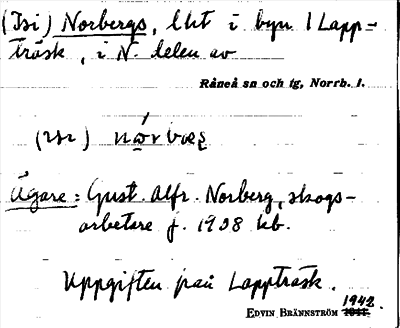 (Isi) Norbergs, lht i byn Lapp-
träsk, i N. delen av
Råneå sn och tg, Norrb. l.
(isi) nórbæş
Ägare: Gust. Alfr. Norberg, skogs-
arbetare f. 1908 kb.
Uppgiften från Lappträsk.
1942.
EDVIN BRÄNNSTRÖM 1941.